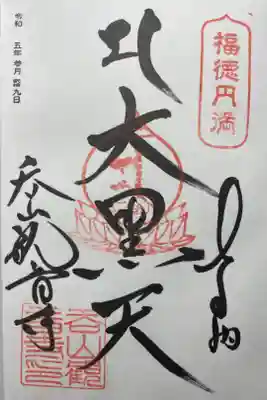 福徳円満
大黒天
呑山観音寺
呑山観音寺之印
令和 五年 参月 九日